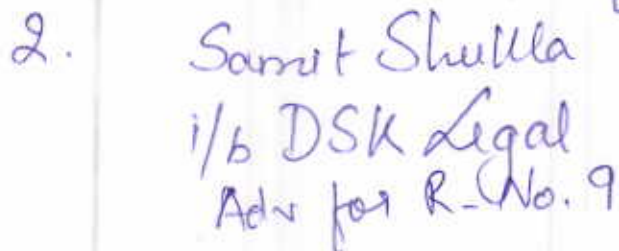 2. Samit Shukla
i/b DSK Legal
Adv for R-No. 9